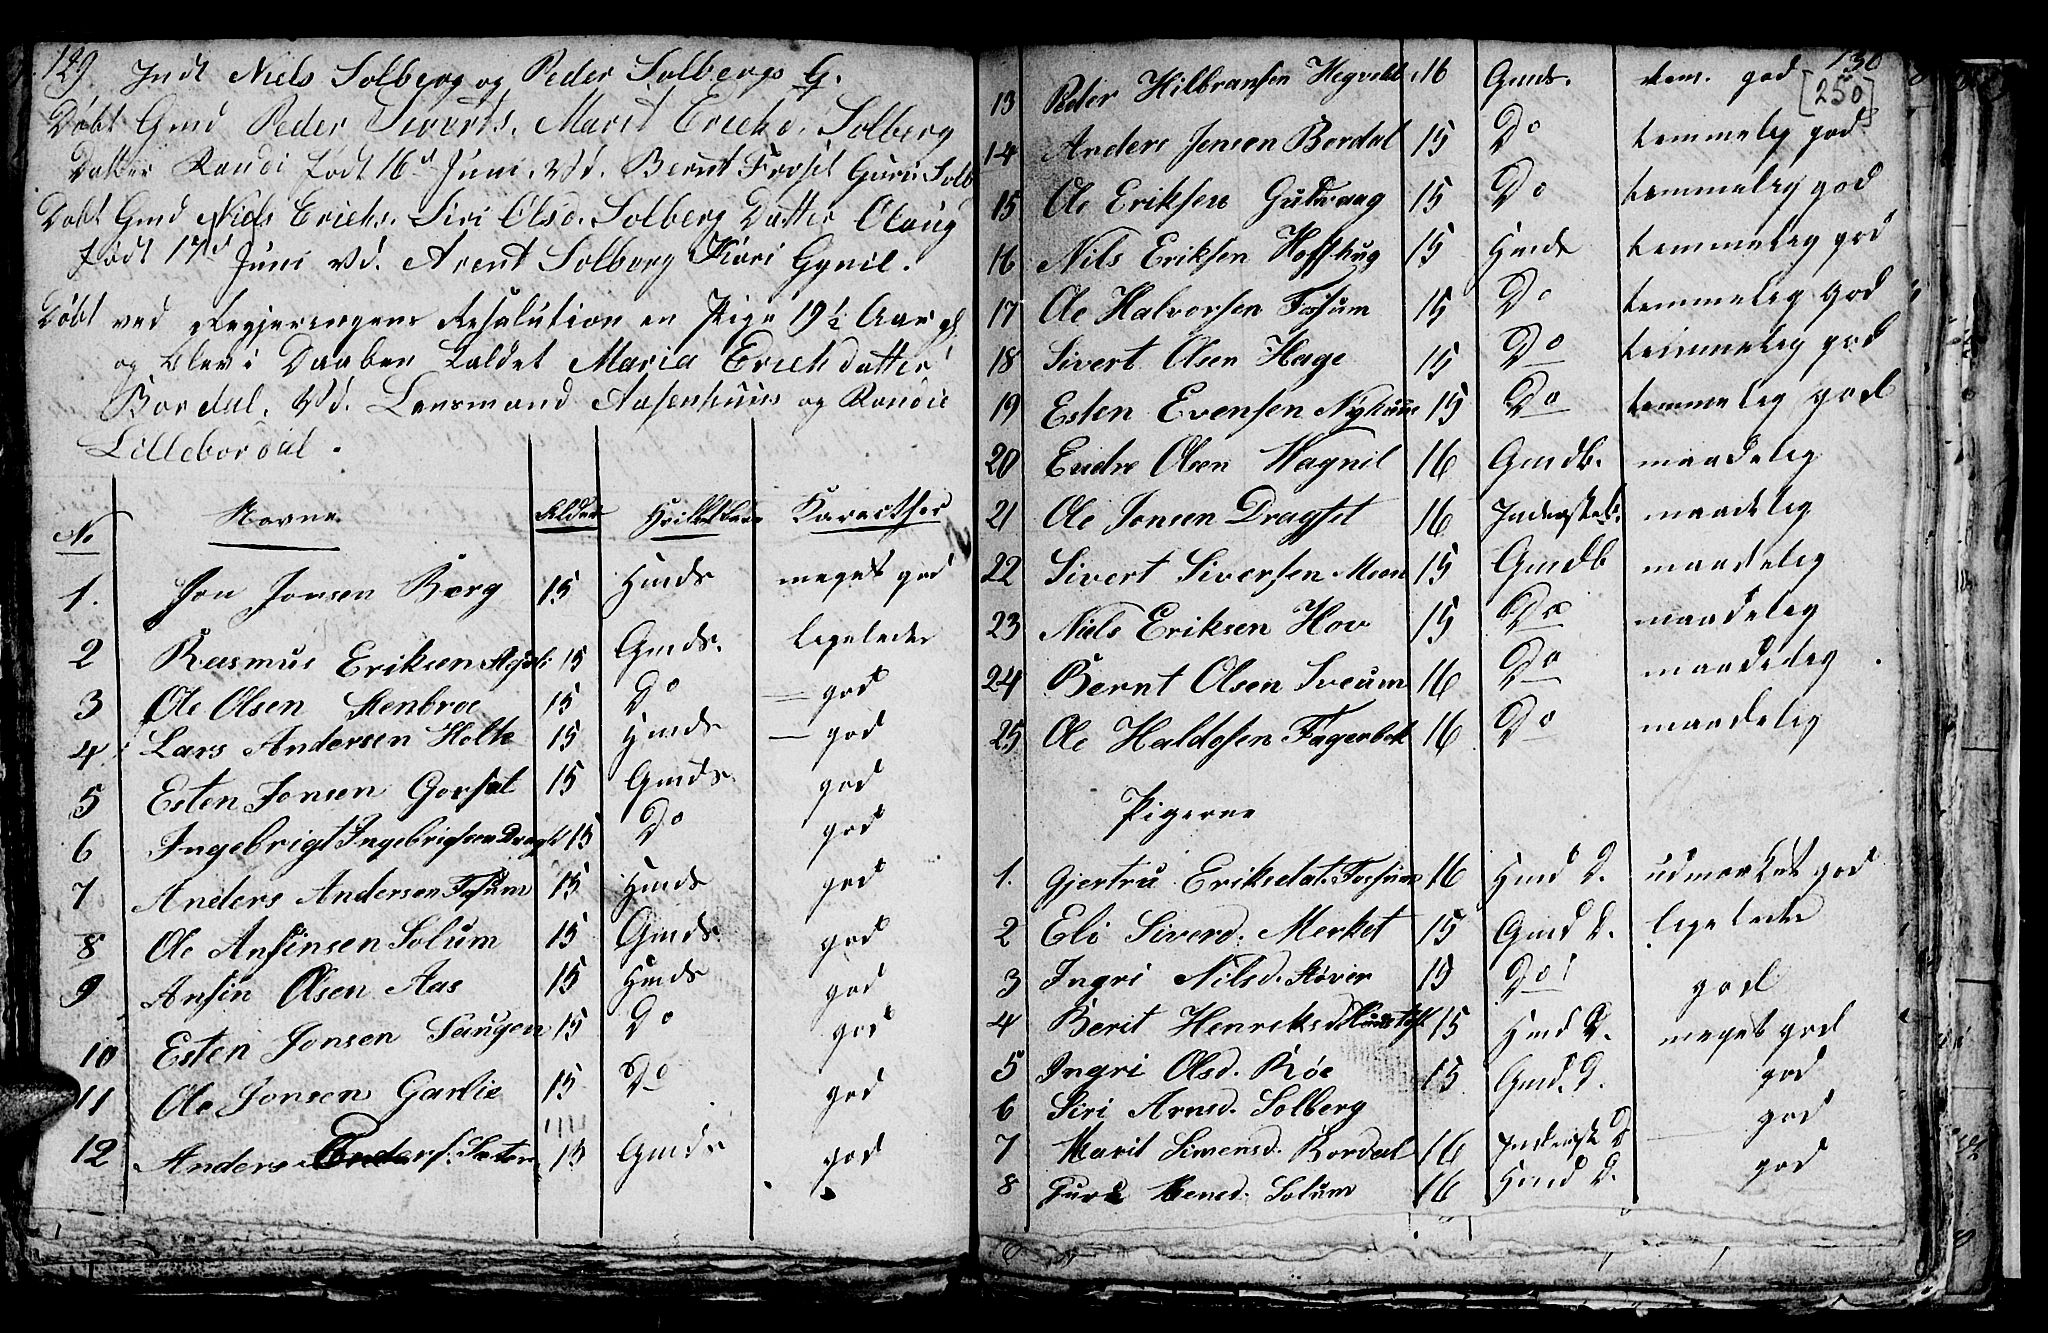 129.
Indl Niels Solberg og Peder Solbergs G.
Døbt Gmd Peder Siverts. Marit Ericksd. Solberg
Datter Randi født 16d Juni. Vd. Bernt Froset Guri Solb
Døbt Gmd Niels Erichs. Siri Olsd. Solberg Datter Olaug
født 17d Juni Vd. Arent Solberg Kari
Døbt ved Regjeringens Resolution en Pige 19½ Aar gl.
og blev i Daaben kaldet Maria Erichdatter
Bordal. Vd. Lensmand Aasenhuus og Randie
Lillebordal.
No Navne Alder Karacther
1. Jon Jonsen Borg 15 Hmds meget god
2 Rasmus Eriksen 15 Gmds. ligeledes
3 Ole Olsen Stenbroe 15 Do — god
4 Lars Andersen Holte 15 Hmds — god
5 Esten Jonsen Gorset 15 Gmds. god
6 Ingebrigt Ingebrigtsen 15 Do god
7 Anders Andersen Fossum 15 Hmds god
8 Ole Ansinsen Solum 15 Gmds. god
9 Ansin Olsen Aas 15 Hmds god
10 Esten Jonsen Haugen 15 Do god
11 Ole Jonsen Garlie 15 Do god
12 Anders Sæter 15 Gmds god
130
[250]
13 Peder Hilbransen 16 Gmds. tem. god
14 Anders Jensen Bordal 15 Do temmelig god
15 Ole Eriksen Guldvaag 15 Do temmelig god
16 Nils Eriksen Hoffhug 15 Hmds temmelig god
17 Ole Halvorsen Fossum 15 Do temmelig god
18 Sivert Olsen Hage 15 Do temmelig god
19 Esten Evensen 15 Do temmelig god
20 Endre Olsen Hagnil 16 Gmdb. maadelig
21 Ole Jonsen Dragset 16 maadelig
22 Sivert Siversen Moen 15 Gmdb maadelig
23 Niels Eriksen Hov 15 Do maadelig
24 Bernt Olsen Sveum 16 Do maadelig
25 Ole Haldosen Fagerbek 16 Do maadelig
Pigerne
1. Gjertru Eriksdat. Fossum 16 Hmd D. udmærket god
2 Eli Siverd. Merket 15 Gmd D. ligeledes
3 Ingri Nilsd. Støver 15 Do god
4 Berit Henriksd. 15 Hmd D. meget god
5 Ingri Olsd. Røe 15 Gmd. D. god
6 Siri Arnsd. Solberg god
7 Marit Simensd. Bordal 16 D. god
8 Guru Solum 16 Hmd D.